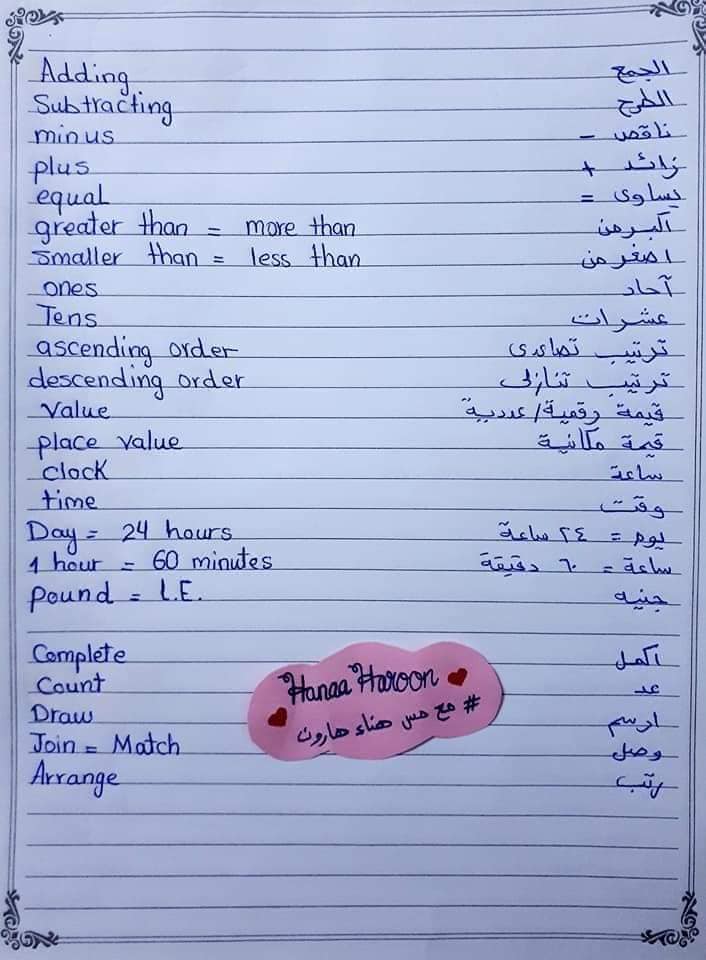 Adding الجمع
Subtracting الطرح
minus ناقص -
plus زائد +
equal يساوى =
greater than = more than اكبر من
smaller than = less than اصغر من
ones آحاد
Tens عشرات
ascending order ترتيب تصاعدى
descending order ترتيب تنازلى
Value قيمة رقمية/عددية
place value قيمة مكانية
clock ساعة
time وقت
Day = 24 hours يوم = ٢٤ ساعة
1 hour = 60 minutes ساعة = ٦٠ دقيقة
pound = L.E. جنيه
Complete اكمل
Count عد
Draw ارسم
Join = Match وصل
Arrange رتب
Hanaa Haroon
# مع مس هناء هارون